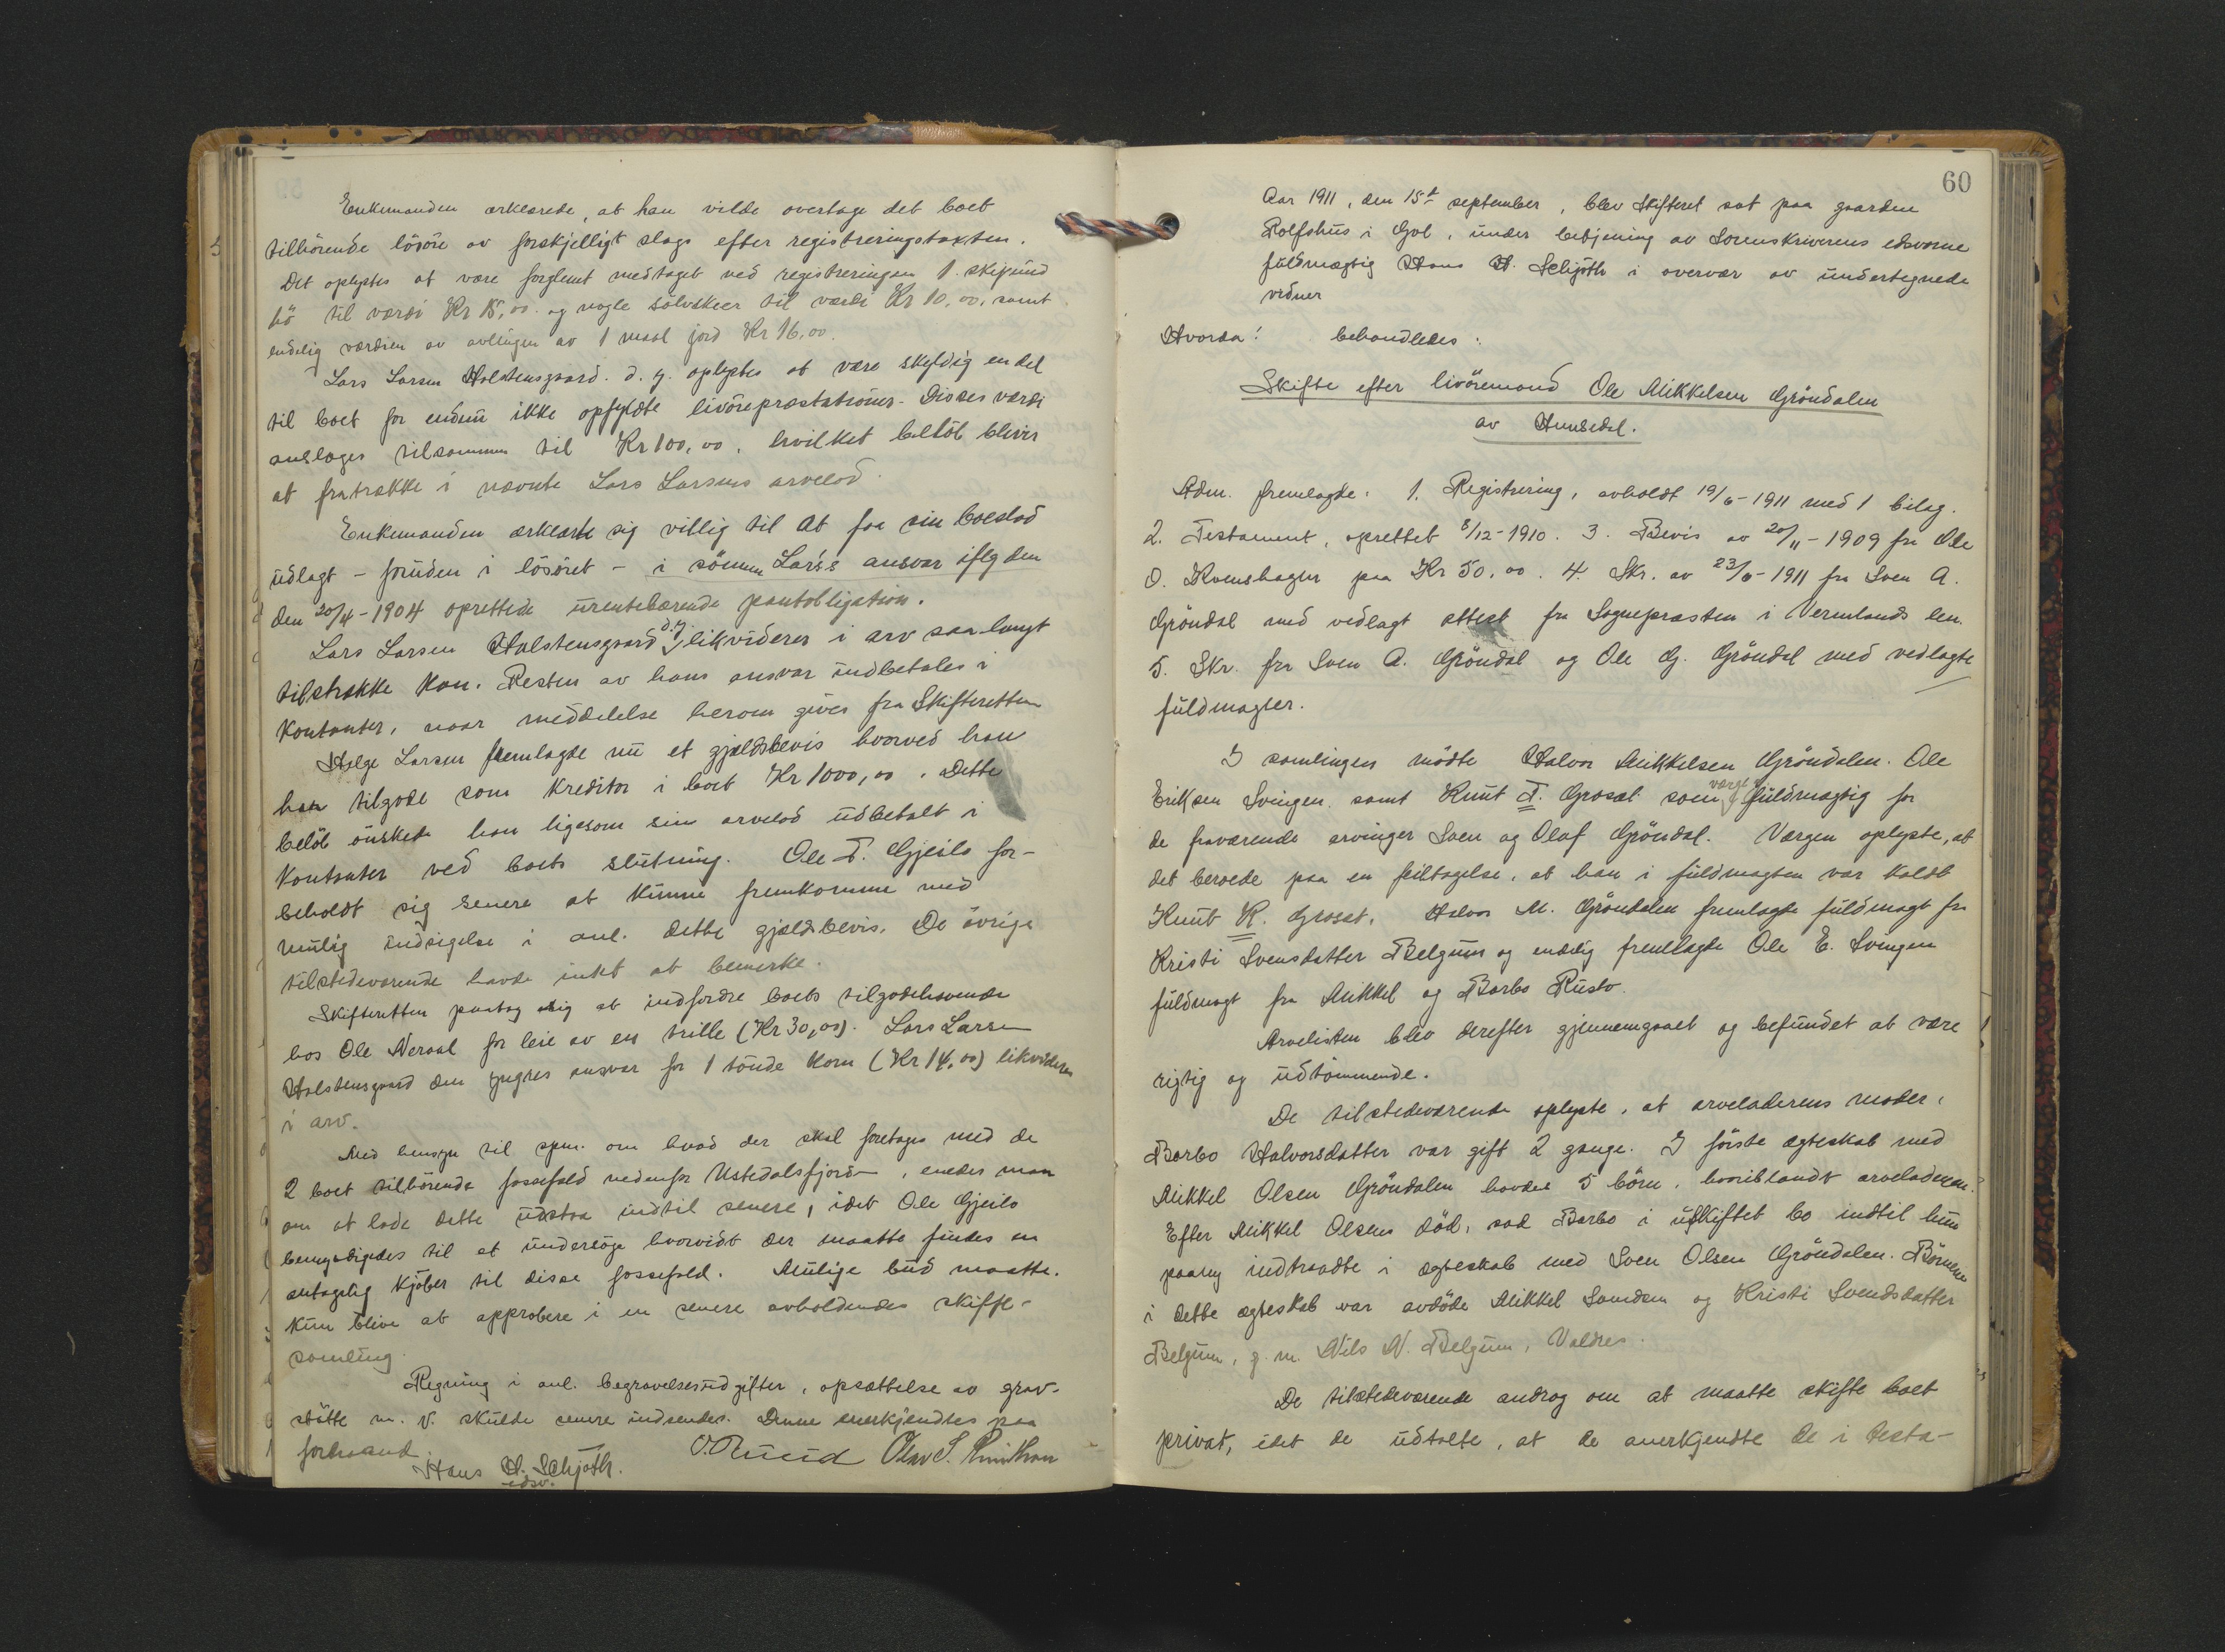 Enkemanden erklærede, at han vilde overtage det boet
tilhörende lösöre av forskjelligt slags efter registreringstaxten.
Det oplystes at være forglemt medtaget ved registreringen 1. skipund
hö til værdi Kr 15,00. og nogle sölvskeer til værdi Kr 10,00, samt
endelig værdien av avlingen av 1 maal jord Kr 16,00.
Lars Larsen Holstensgaard. d. y. oplystes at være skyldig en del
til boet for endnu ikke opfyldte livörepræstationer. Disses værdi
anslages tilsammen til Kr 100,00, hvilket belöb bliver
at fratrække i nævnte Lars Larsens arvelod.
Enkemanden erklærte sig villig til at faa sin boeslod
udlagt - foruden i lösöret - i sönnen Lars's ansvar iflg den
den 20/4-1904 oprettede urentebærende pantobligation.
Lars Larsen Holstensgaard d.y. likviderer i arv saa langt
tilstrække kan. Resten av hans ansvar indbetales i
kontanter, naar meddelelse herom gives fra Skifteretten
Helge Larsen fremlagde nu et gjældsbevis hvorved han
har tilgode som kreditor i boet Kr 1000,00. Dette
belöb önskede han ligesom sin arvelod udbetalt i
kontanter ved boets slutning. Ole T. Gjeilo for-
beholdt sig senere at kunne fremkomme med
mulig indsigelse i anl. dette gjældsbevis. De övrige
tilstedeværende havde intet at bemerke.
Skifteretten paatog sig at indfordre boets tilgodehavende
hos Ole Neraal for leie av en trille (Kr 30,00). Lars Larsen
Holstensgaard den yngres ansvar for 1 tönde korn (Kr 14,00) likvideres
i arv.
Med hensyn til spm. om hvad der skal foretages med de
2 boet tilhörende fossefald nedenfor Ustedalsfjord, enedes man
om at lade dette udstaa indtil senere, idet Ole Gjeilo
bemyndigedes til at undersöge hvorvidt der maatte findes en
antagelig kjöber til disse fossefald. Mulige bud maatte.
kun blive at approbere i en senere avholdendes skifte-
samling.
Regning i anl. begravelsesudgifter, opsættelse av grav-
stötte m. v. skulde senere indsendes. Denne anerkjendtes paa
forhaand.
Hans H. Schjöth. O. Ruud Olav S.
edsv.
60
Aar 1911, den 15de september, blev skifteret sat paa gaarden
Rolfshus i Gol, under betjening av Sorenskriverens edsvorne
fuldmægtig Hans H. Schjöth i overvær av undertegnede
vidner
Hvorda: behandledes:
Skifte efter livöremand Ole Mikkelsen Gröndalen
av Hemsedal.
Adm. fremlagde: 1. Registrering, avholdt 19/6-1911 med 1 bilag.
2. Testament, oprettet 8/12-1910. 3. Bevis av 20/11-1909 fra Ole
O. Kvenshagen paa Kr 50,00. 4. Skr. av 23/6-1911 fra Sven A.
Gröndal med vedlagt attest fra Sognepræsten i Vermlands len.
5. Skr. fra Sven A. Gröndal og Ole G. Gröndal med vedlagte
fuldmagter.
I samlingen mödte Halvor Mikkelsen Gröndalen. Ole
Eriksen Svingen. samt Knut T. Grøset som værge og fuldmægtig for
de fraværende arvinger Sven og Olaf Gröndal. Værgen oplyste, at
det beroede paa en feiltagelse, at han i fuldmagten var kaldt
Knut K. Grøset. Halvor M. Gröndalen fremlagde fuldmagt fra
Kristi Svensdatter Belgum og endelig fremlagde Ole E. Svingen
fuldmagt fra Mikkel og Barbo Rusto.
Arvelisten blev derefter gjennemgaaet og befundet at være
rigtig og udtömmende.
De tilstedeværende oplyste, at arveladerens moder,
Barbo Halvorsdatter var gift 2 gange. I förste ægteskab med
Mikkel Olsen Gröndalen havdes 5 börn, hvoriblandt arveladeren.
Efter Mikkel Olsens död, sad Barbo i uskiftet bo indtil hun
paany indtraadte i ægteskab med Sven Olsen Gröndalen. Börnene
i dette ægteskab var avdöde Mikkel Svendsen og Kristi Svendsdatter
Belgum, g. m. Nils N. Belgum, Valdres.
De tilstedeværende androg om at maatte skifte boet
privat, idet de udtalte, at de anerkjendte de i testa-